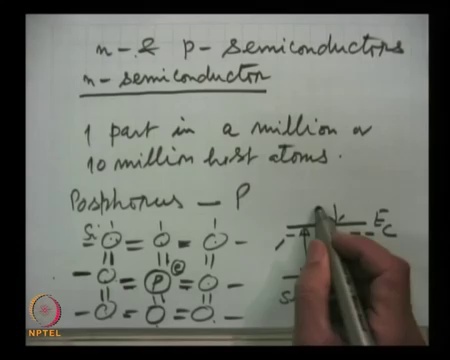 n- & p- semiconductors
n- semiconductor
1 part in a million or
10 million host atoms.
Posphorus — P
Si
P
e
E_C
S
NPTEL